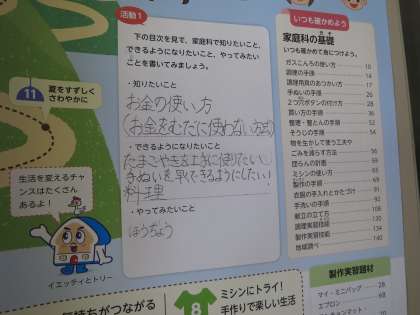 活動1
下の目次を見て、家庭科で知りたいこと、
できるようになりたいこと、やってみたい
ことを書いてみましょう。
・知りたいこと
お金の使い方
(お金をむだに使わない方法)
・できるようになりたいこと
たまごやきを上手に作りたい。
手ぬいを早くできるようにしたい!
料理
・やってみたいこと
ほうちょう
11
夏をすずしく
さわやかに
生活を変えるチャ
ンスはたくさん
あるよ!
イエッティとトリー
いつも確かめよう
家庭科の基礎
いつも確かめて身につけよう。
ガスこんろの使い方 10
調理の手順 14
調理用具のあつかい方 17
手ぬいの手順 26
2つ穴ボタンの付け方 28
買い方の手順 36
整理・整とんの手順 52
そうじの手順 54
物を生かして使う工夫や
ごみを減らす方法 56
ミシンの使い方
製作の手順
衣服の手入れとかたづけ 91
手洗いの手順 92
献立の立て方
調理実習技能 134
製作実習技能 140
地域調べ
製作実習題材
マイ・ミニバッグ 28
エプロン 68
気持ちがつながる
8
ミシンにトライ!
手作りで楽しい生活